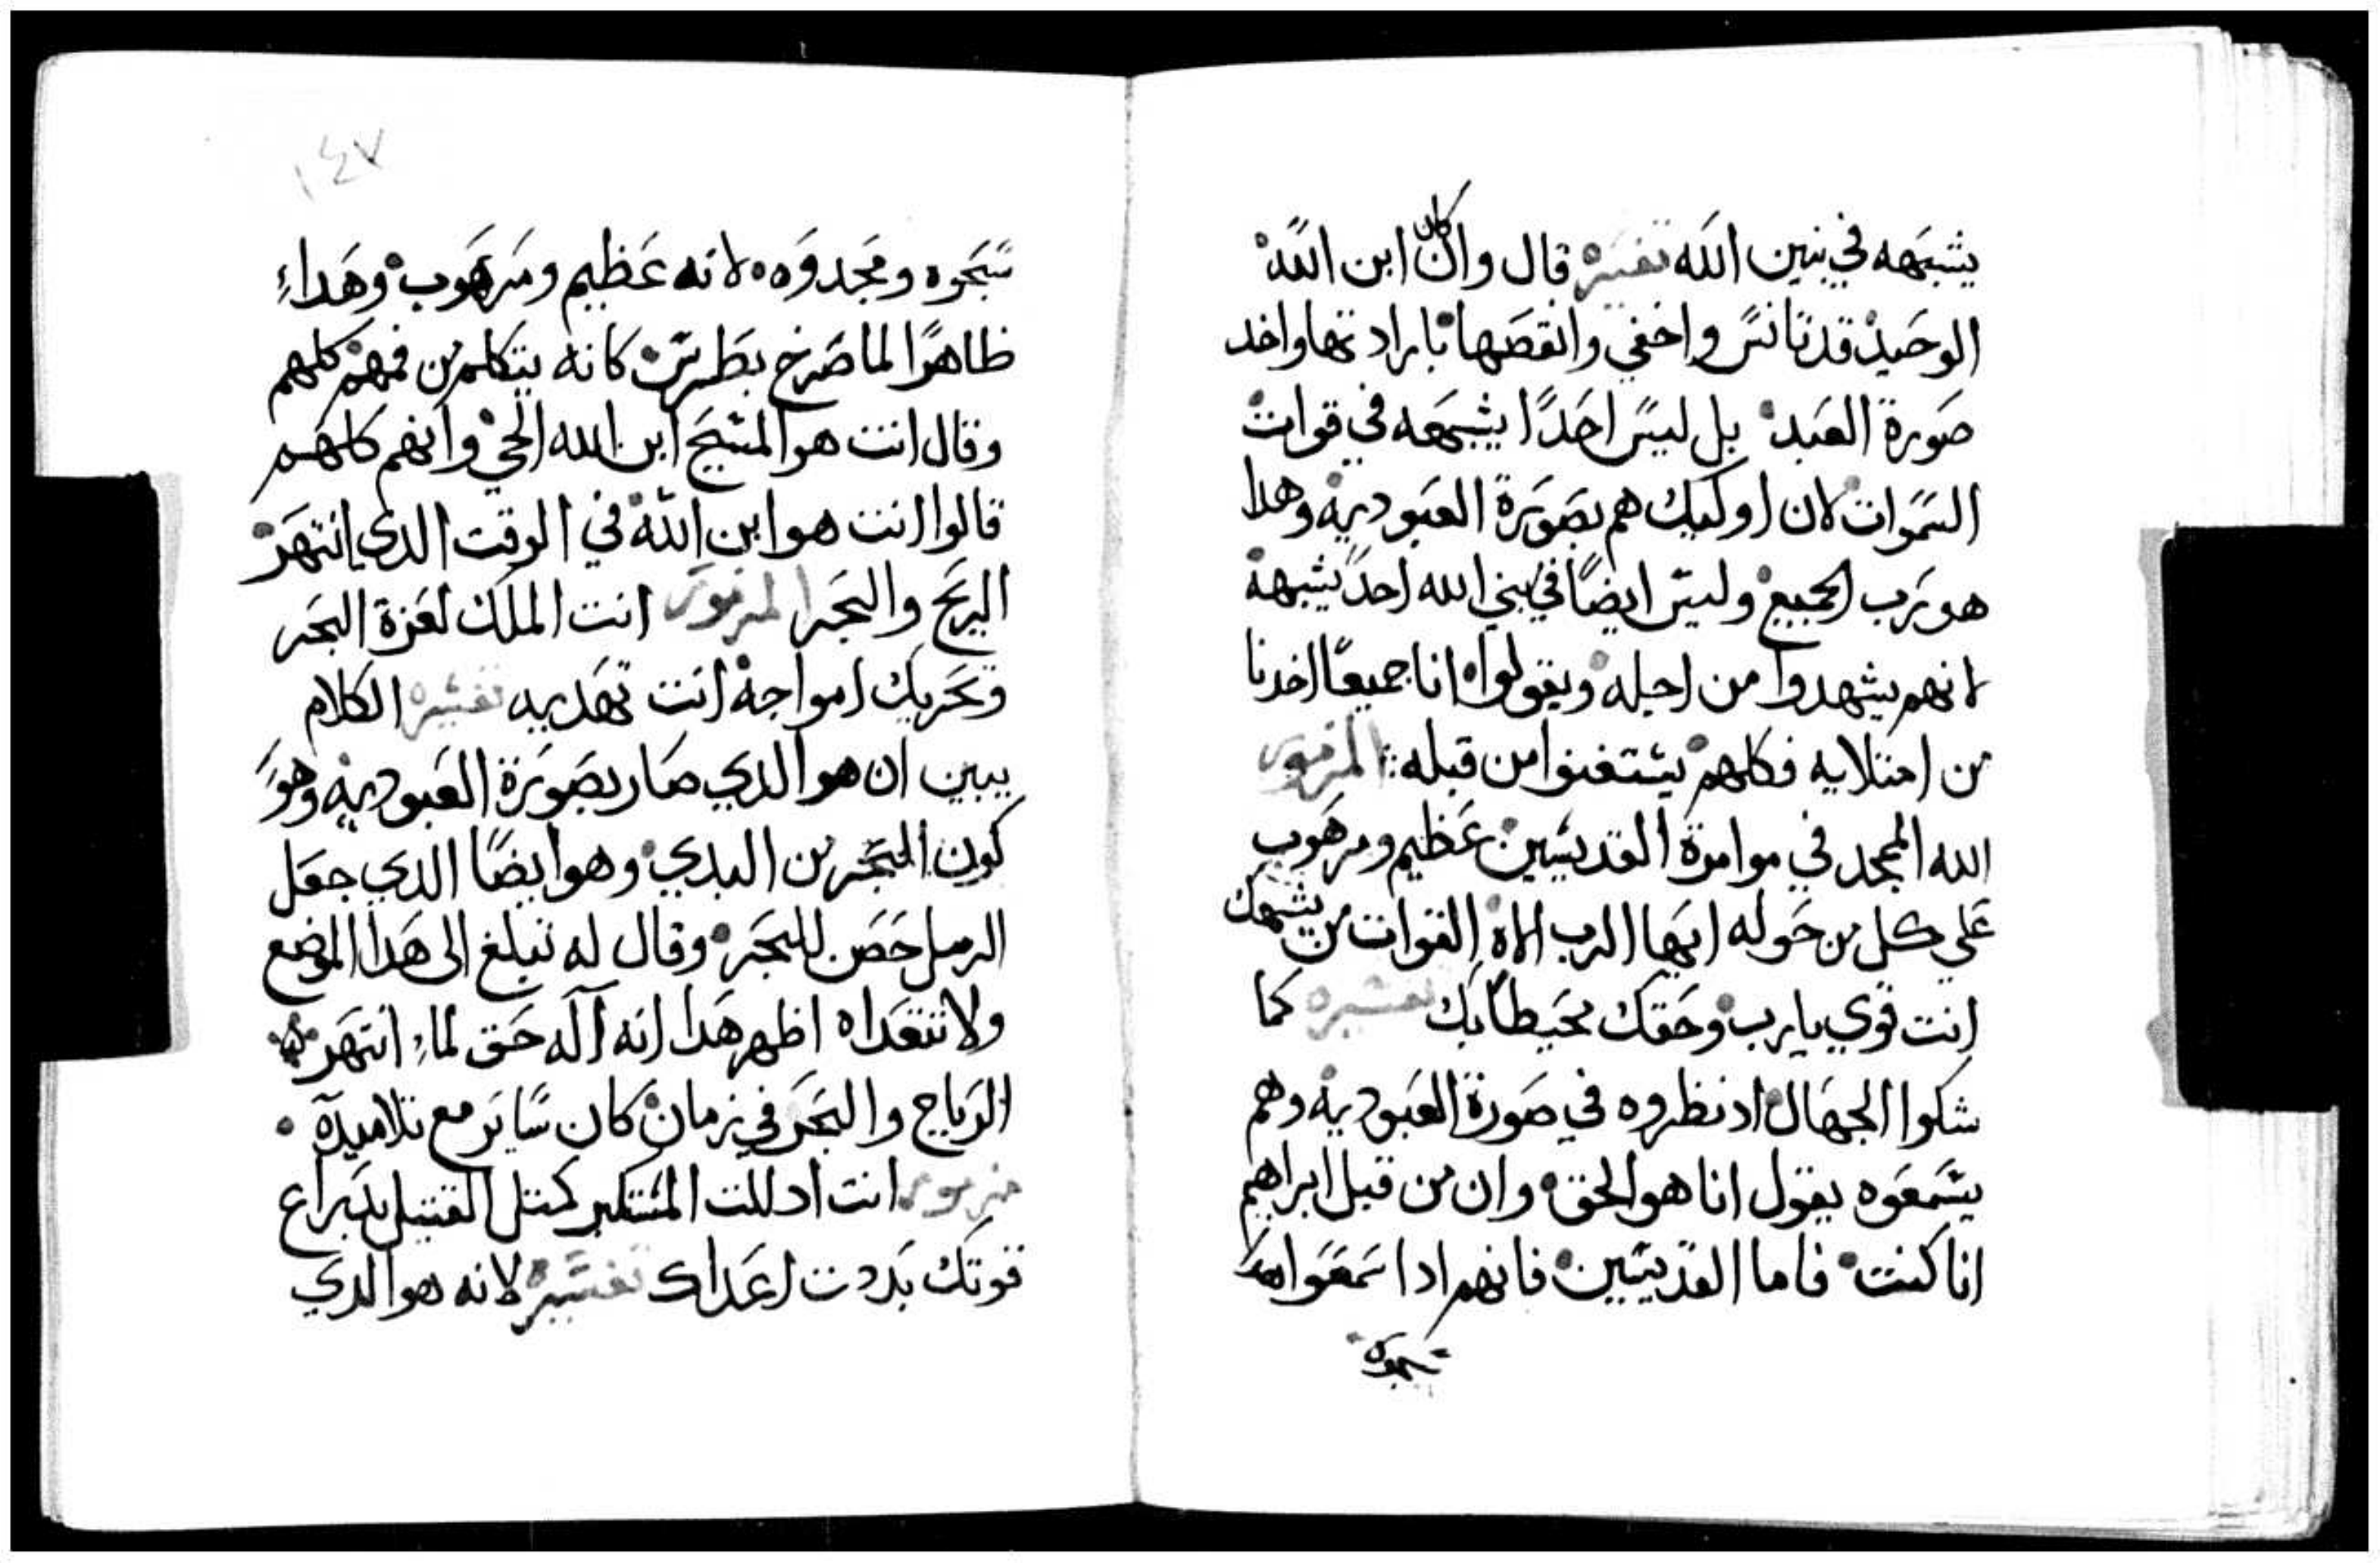 يشبهه في بنين الله تفسير قال وان كان ابن الله
الوحيد قد تانس واخفي وانقصها بارادتها واخد
صورة العبد بل ليس احدًا يشبهه في قوات
السموات لان اوليك هم بصورة العبودية وهدا
هو رب الجميع وليس ايضًا في بني الله احد يشبهه
لانهم يشهدوا من اجله ويقولوا انا جميعًا اخدنا
من امتلايه فكلهم يستغنوا من قبله المزمور
الله الممجد في موامرة القديسين عظيم ومرهوب
علي كل من حوله ايها الرب الاه القوات من يشبهك
انت قوي يا رب وحقك محيطًا بك تفسيره كما
شكوا الجهال اد نظروه في صورة العبودية وهم
يسمعوه يقول انا هو الحق وان من قبل ابراهيم
انا كنت فاما القديسين فانهم ادا سمعوا هدا
سبحوه
١٤٧
سبحوه ومجدوه لانه عظيم ومرهوب وهداء
ظاهرًا لما صرخ بطرس كانه يتكلم من فمهم كلهم
وقال انت هو المسيح ابن الله الحي وانهم كلهم
قالوا انت هو ابن الله في الوقت الدي انتهر
الريح والبحر المزمور انت الملك لعزة البحر
وتحريك امواجه انت تهديه تفسيره الكلام
يبين ان هو الدي صار بصورة العبودية وهو
كون البحر من البدي وهو ايضًا الدي جعل
الرمل حصن للبحر وقال له تبلغ الى هدا الموضع
ولا تتعداه اظهر هدا انه اله حق لماء انتهر
الرياح والبحر في زمان كان ساير مع تلاميده
مزمور انت ادللت المستكبر كمتل القتيل بدراع
قوتك بددت اعداك تفسير لانه هو الدي